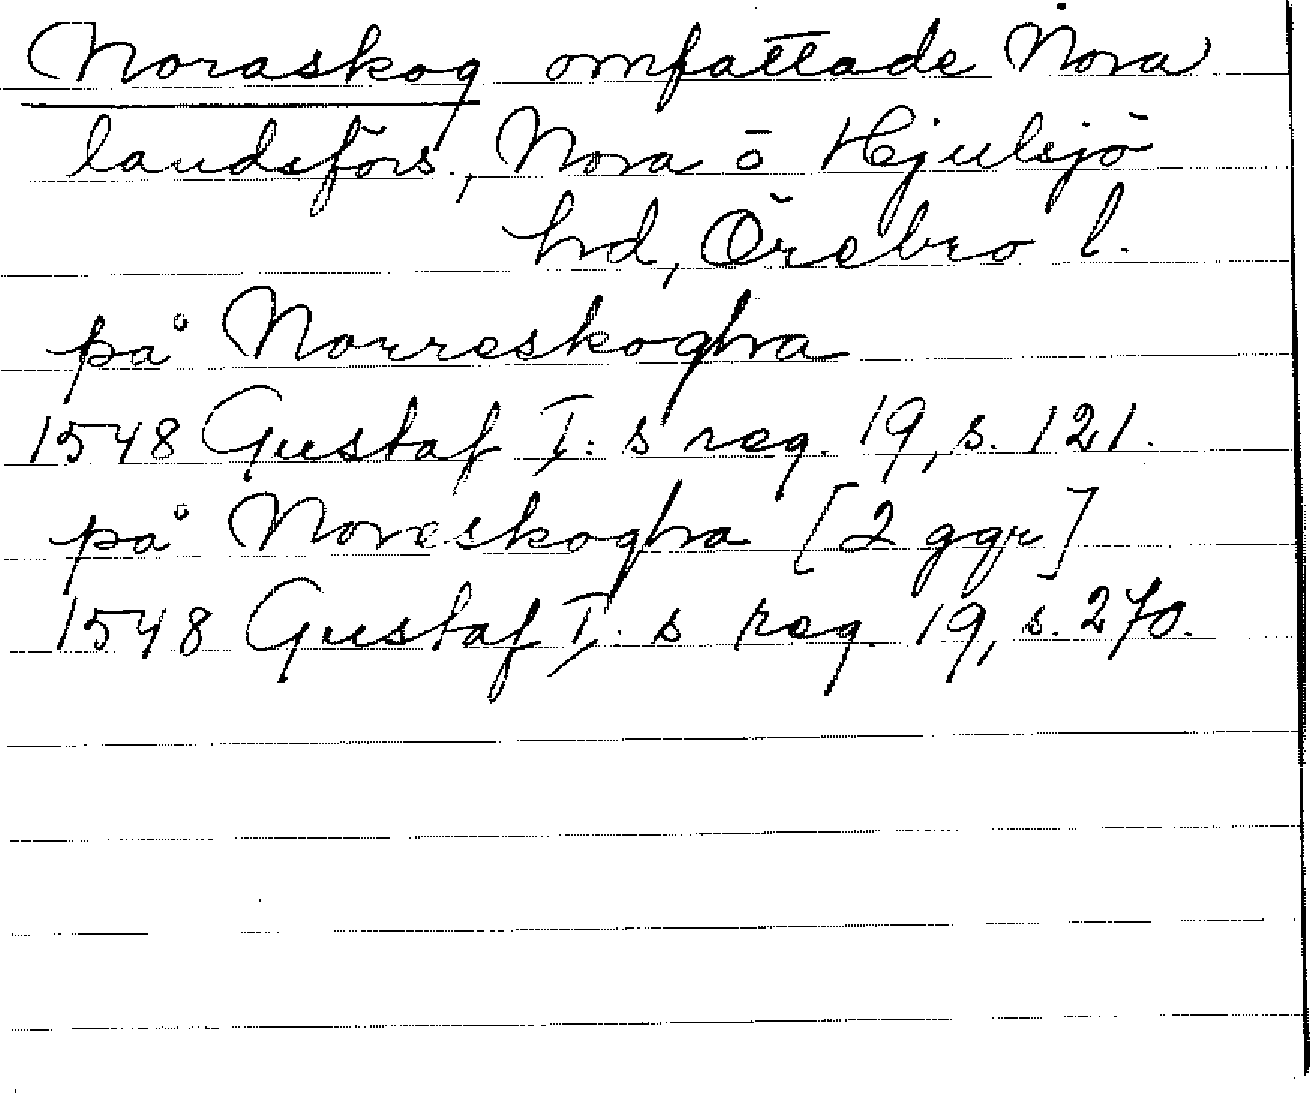 Noraskog omfattade Nora
landsförs., Nora o Hjulsjö
hd, Örebro l.
på Norreskogha
1548 Gustaf I:s reg. 19, s. 121.
på Noreskogha [2 ggr]
1548 Gustaf I:s reg. 19, s. 270.